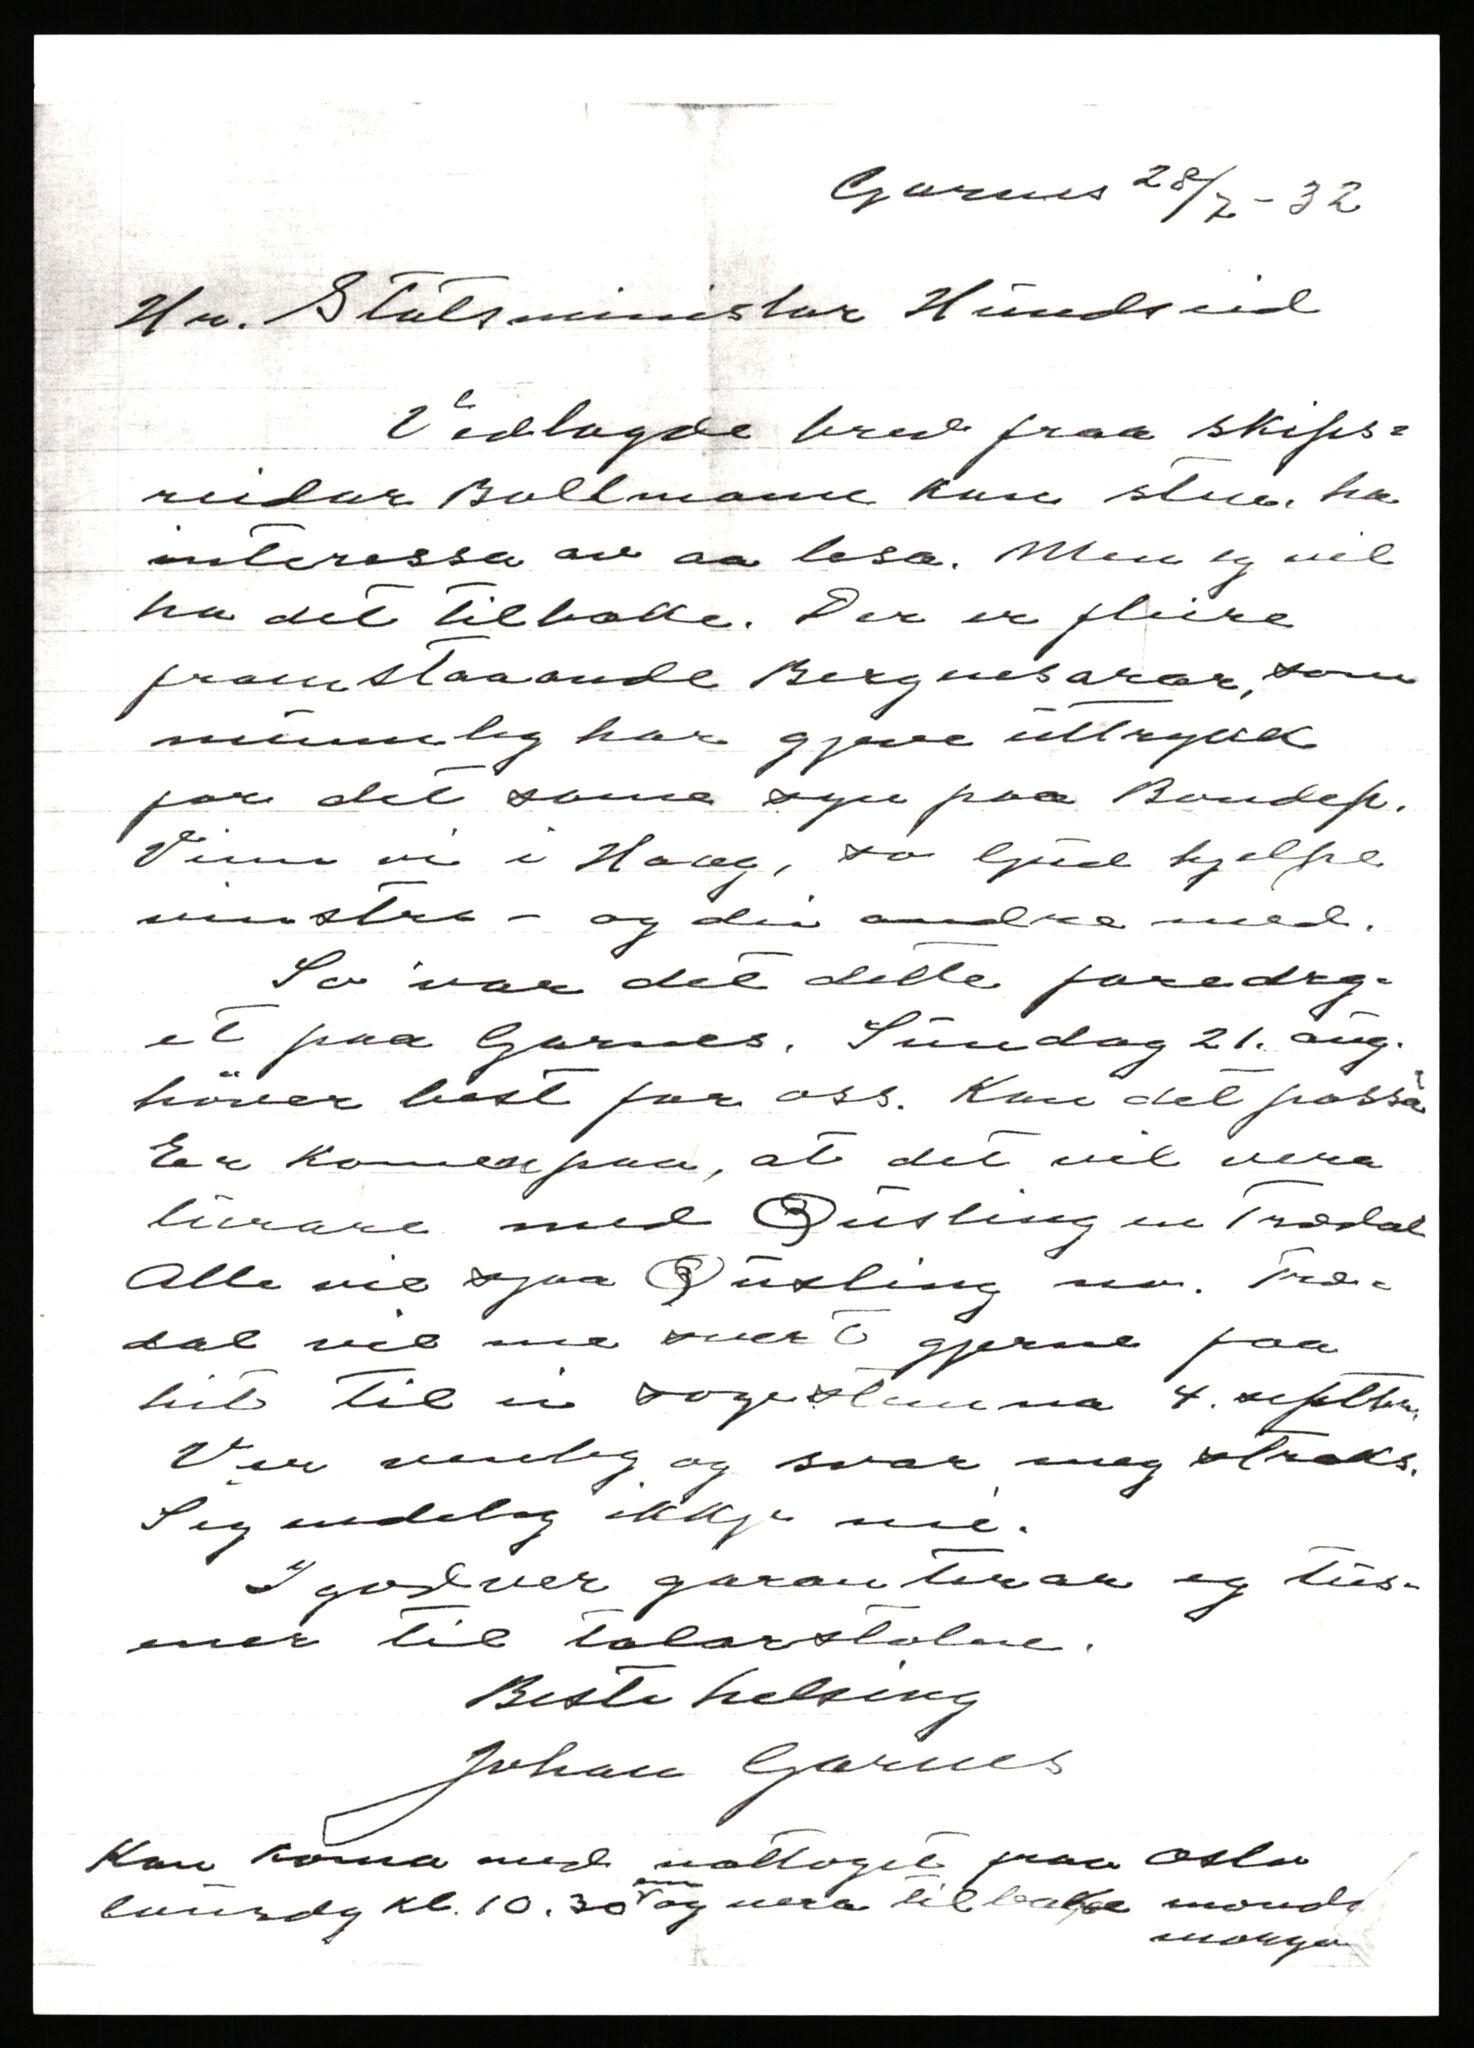 Garnes 28/7 - 32
Hr. Statsministar Hundseid
Vedlagde brev fraa skips-
reidar Boltmann kan stm. ha
interessa av aa lesa. Men eg vil
ha det tilbake. Der er fleire
framstaaande Bergensarar, som
munnleg har gjeve uttrykk
for det same syn paa Bondep.
Vinn vi i Haag, so Gud hjelpe
vinstre - og dei andre med.
So var det dette foredrg-
et paa Garnes. Sundag 21. aug.
höver best for oss. Kan det passa
Er komen paa, at det vil vera
lurare med Quisling en Trædal
Alle vil sjaa Quisling no. Træ-
dal vil me svert gjerne faa
hit til ei sogestemna 4. septbr.
Ver venleg og svar meg straks.
Seg endeleg ikkje nei.
I godver garanterar eg tus-
ener til talarstolen.
Beste helsing
Johan Garnes
Kan koma med nattoget fraa Oslo
laurdg kl. 10.30 em og vera tilbake mond
morgo